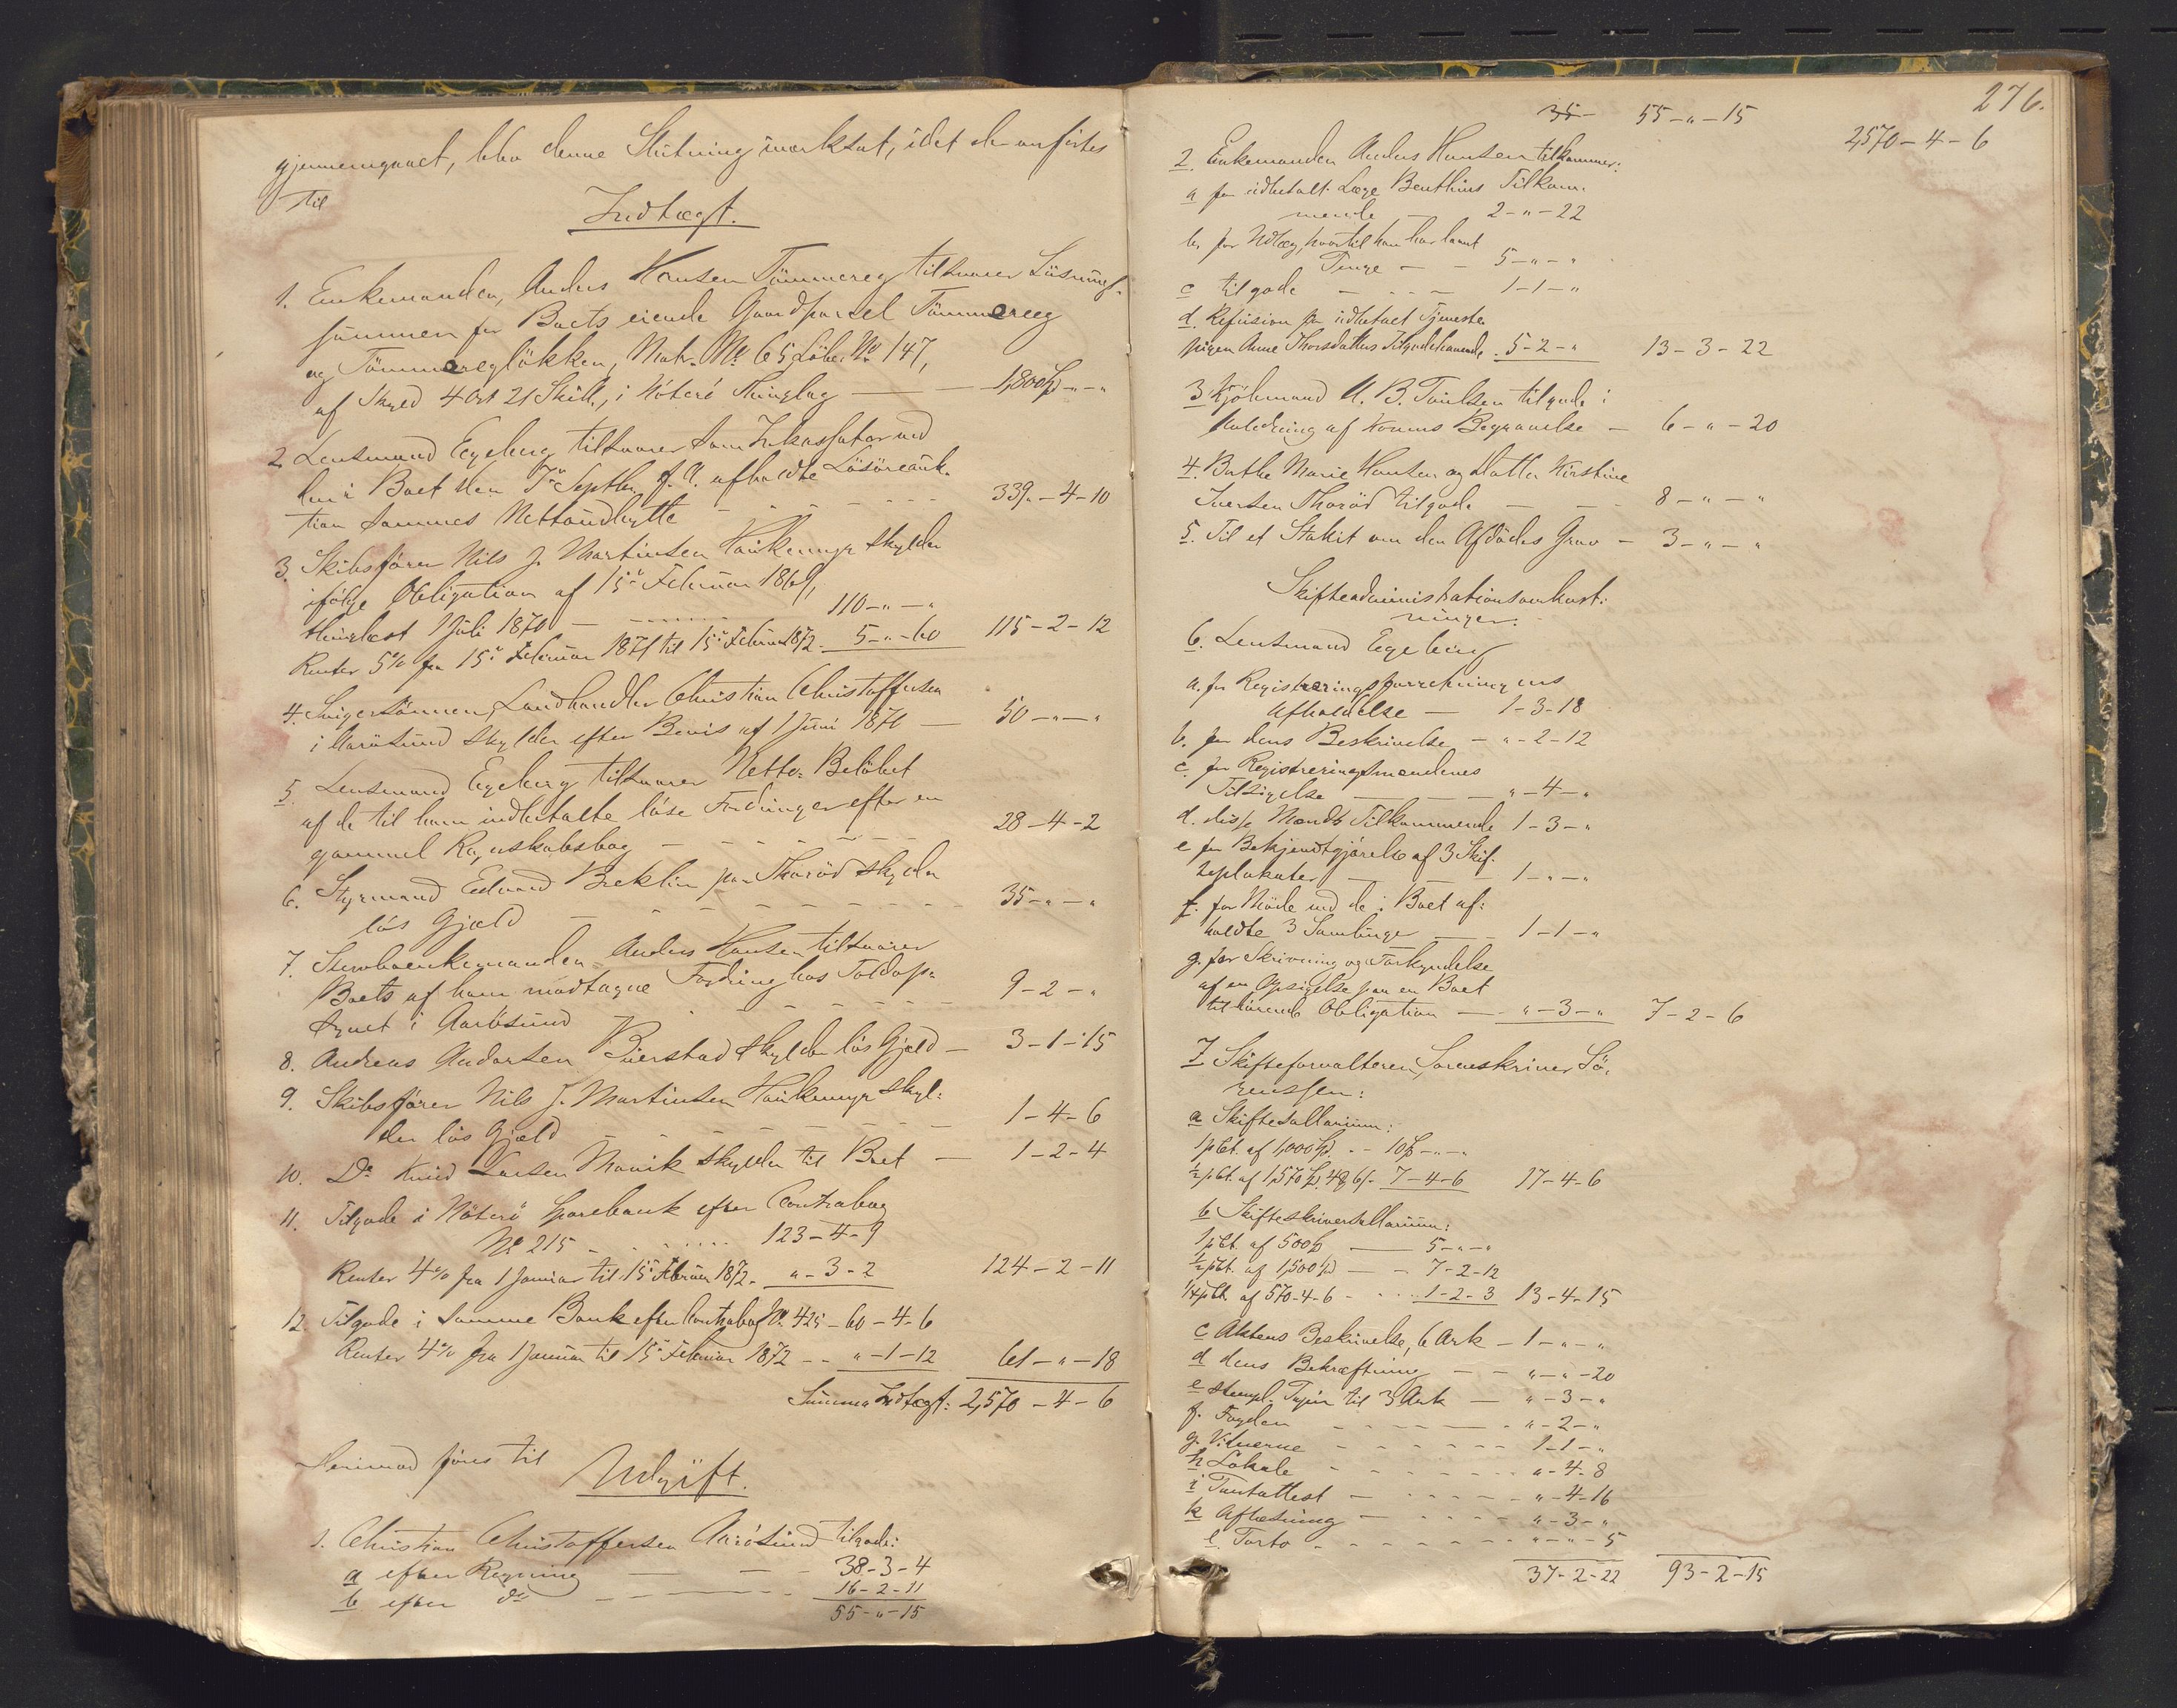 gjennemgaaet, blev denne Slutning iværksat, idet der anførtes
til
Indtægt.
1. Enkemanden, Anders Hansen Tømmereeg tilsvarer Løsnings-
summen for Boets eiende Gaardparcel Tømmereeg
og Tømmereegløkken, Matr. No 65 Løbe No 147,
af Skyld 4 Ort 21 Skill, i Nøterø Thinglag — 1,800 Spd - „ - „
2 Lensmand Egeberg tilsvarer som Inkassator ved
den i Boet den 7de Septbr. f. A. afholdte Løsøreauk-
tion sammes Nettoudbytte - - - 339 - 4 - 10
3. Skibsfører Nils J. Martinsen Haukemyr skylder
ifølge Obligation af 15de Februar 1869,
thinglæst 1 Juli 1870 — 110 - „ - „
Renter 5 % fra 15de Februar 1871 til 15de Februar 1872. 5 - „ - 60 115 - 2 - 12
4. Svigersønnen, Landhandler Christian Christoffersen
i Aarøsund skylder efter Bevis af 1 Juni 1871 — 50 - „ - „
5. Lensmand Egeberg tilsvarer Netto-Beløbet
af de til ham indbetalte løse Fordringer efter en
gammel Regnskabsbog — 28 - 4 - 2
6. Styrmand Edvard Breklin paa Thorød skylder
løs Gjæld - - - 35 - „ - „
7. Stervboenkemanden Anders Hansen tilsvarer
Boets af ham modtagne Fordring hos Toldop-
synet i Aarøsund - - - 9 - 2 - „
8. Andreas Andersen Buerstad skylder løs Gjæld — 3 - 1 - 15
9. Skibsfører Nils J. Martinsen Haukemyr skyl-
der løs Gjæld - - - 1 - 4 - 6
10. Do Knud Larsen skylder til Boet — 1 - 2 - 4
11. Tilgode i Nøterø Sparebank efter Contrabog
No 215 - - - 123 - 4 - 9
Renter 4 % fra 1 Januar til 15de Februar 1872. „ - 3 - 2 124 - 2 - 11
12. Tilgode i samme Bank efter Contrabog No 425 - 60 - 4 - 6
Renter 4 % fra 1 Januar til 15de Februar 1872 - - „ - 1 - 12 61 - „ - 18
Summa Indtægt: 2,570 - 4 - 6
Herimod føres til
Udgift.
1. Christian Christoffersen Aarøsund tilgode:
a efter Regning — 38 - 3 - 4
b efter do — 16 - 2 - 11
55 - „ - 15
276.
35 - 55 - „ - 15 2570 - 4 - 6
2. Enkemanden Anders Hansen tilkommer:
a for udbetalt Læge Benthins Tilkom-
mende — 2 - „ - 22
b, for Udlæg, hvortil han har laant
Penge — 5 - „ - „
c tilgode — 1 - 1 - „
d. Refusion for udbetalt Tjeneste-
pigen Anne Thorsdatters Tilgodehavende 5 - 2 - „ 13 - 3 - 22
3 Kjøbmand A. B. Paulsen tilgode i
Anledning af Konens Begravelse — 6 - „ - 20
4. Berthe Marie Hansen og Datter Kirstine
Iversen Thorød tilgode — 8 - „ - „
5. Til et Stakit om den Afdødes Grav — 3 - „ - „
Skifteadministrationsomkost-
ninger:
6. Lensmand Egeberg
a. for Registreringsforretningens
Afholdelse — 1 - 3 - 18
b. for dens Beskrivelse — „ - 2 - 12
c. for Registreringsmændenes
Tilsigelse — „ - 4 - „
d. disse Mænds Tilkommende 1 - 3 - „
e for Bekjendtgjørelse af 3 Skif-
teplakater — 1 - „ - „
f. for Møde ved de i Boet af-
holdte 3 Samlinger — 1 - 1 - „
g. for Skrivning og Forkyndelse
af en Opsigelse paa en Boet
tilhørende Obligation — „ - 3 - „ 7 - 2 - 6
7. Skifteforvalteren, Sorenskriver Sø-
renssen:
a Skiftesallarium:
1 pCt. af 1,000 Spd. - - 10 Spd - „ - „
½ pCt. af 1,570 Spd. 4 Ort 6 s. 7 - 4 - 6 17 - 4 - 6
b Skifteskriversallarium:
1 pCt. af 500 Spd — 5 - „ - „
½ pCt. af 1,500 Spd — 7 - 2 - 12
¼ pCt. af 570 - 4 - 6 - - 1 - 2 - 3 13 - 4 - 15
c Aktens Beskrivelse, 6 Ark — 1 - „ - „
d dens Bekræftning — „ - „ - 20
e stempl. Papir til 3 Ark — „ - 3 - „
f. Fogden - - - „ - 2 - „
g. Vidnerne - - - 1 - 1 - „
h Lokale - - - „ - 4 - 8
i Pantattest - - - „ - 4 - 16
k Aflæsning - - - „ - 3 - „
l. Porto - - - „ - „ - 5
37 - 2 - 22 93 - 2 - 15